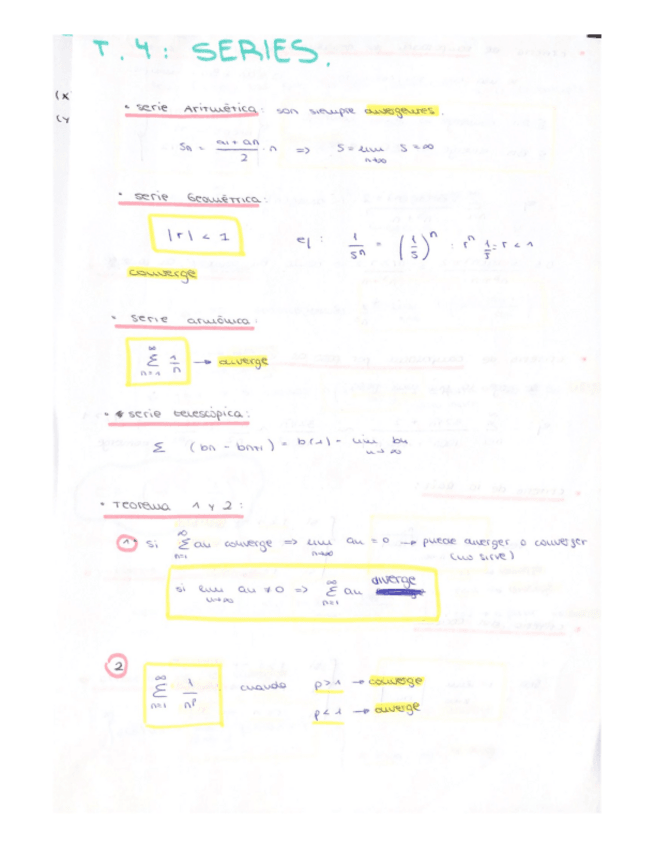 T.4: SERIES.
(x
(y
• serie Aritmética: son siempre divergentes.
Sn = a1 + an / 2 · n => S = lim n→∞ S = ∞
• serie Geométrica:
|r| < 1 ej: 1/5^n = (1/5)^n : r^n 1/5 = r < 1
converge
• serie armónica:
∞ Σ n=1 1/n → diverge
• serie telescópica:
Σ (bn - bn+1) = b(1) - lim n→∞ bn
• Teorema 1 y 2:
1 si ∞ Σ n=1 an converge => lim n→∞ an = 0 → puede diverger o converger
(no sirve)
si lim n→∞ an ≠ 0 => ∞ Σ n=1 an diverge
2 ∞ Σ n=1 1/n^p cuando p>1 → converge
p<1 → diverge